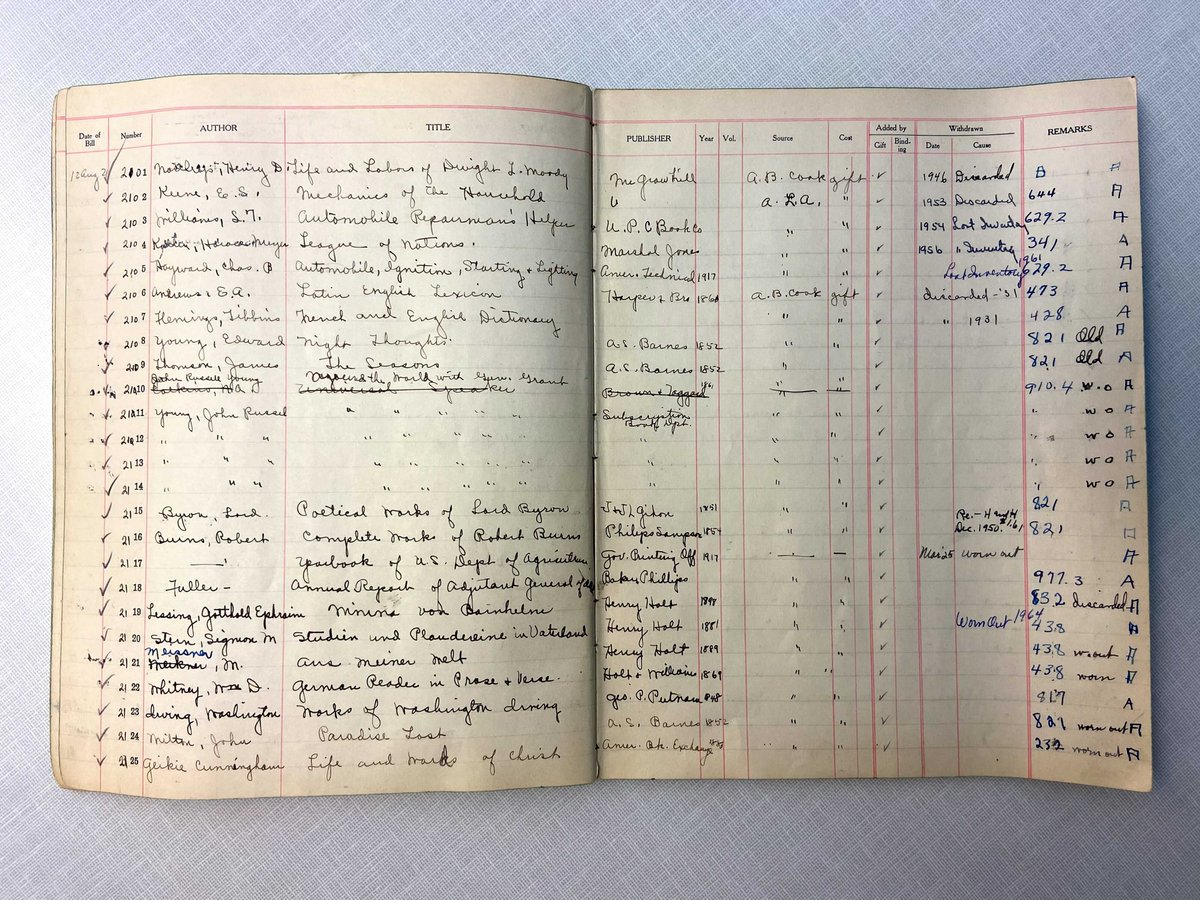 Date of Bill Number AUTHOR TITLE PUBLISHER Year Vol. Source Cost Added by Gift Binding Withdrawn Date Cause REMARKS
2101 Henry D. Life and Labors of Dwight L. Moody McGrawhill A.B. Cook gift ✓ 1946 Discarded B A
2102 Keene, E.S. Mechanics of the Household " A.L.A. " 1953 Discarded 644 A
2103 Williams, S.T. Automobile Repairman's Helper U.P.C Book Co " " ✓ 1954 Lost Inventory 629.2 A
2104 Horace Meyer League of Nations. Marshal Jones " " ✓ 1956 " Inventory 341 A
2105 Hayward, Chas. B Automobile, Ignition, Starting & Lighting Amer. Technical 1917 " " ✓ Lost Inventory 1961 629.2 A
2106 Andrews, E.A. Latin English Lexicon Harper & Bro 1860 A.B. Cook gift ✓ discarded - '31 473 A
2107 Flemings, Tibbins French and English Dictionary " " ✓ " 1931 428 A
2108 Young, Edward Night Thoughts. A.S. Barnes 1852 " " ✓ 821 Old A
2109 Thomson, James The Seasons A.S. Barnes 1852 " " ✓ 821 Old A
2110 John Russell Young Around the World with Gen. Grant Brown & Taggard " " ✓ 910.4 w.o A
2111 Young, John Russel " " " " " Subscription Book Dpt. " " ✓ " w o A
2112 " " " " " " " " " " ✓ " w o A
2113 " " " " " " " " " " ✓ " w o A
2114 " " " " " " " " " " ✓ " w o A
2115 Byron, Lord. Poetical Works of Lord Byron J & J L Gihon 1851 " " ✓ 821 A
2116 Burns, Robert Complete Works of Robert Burns Philips Sampson 1854 " " ✓ Dec. 1950. 821
2117 — " Yearbook of U.S. Dept of Agriculture Gov. Printing Off 1917 — — ✓ Mar 25 worn out A
2118 Fuller - Annual Report of Adjutant General of Baker Phillips " " ✓ 977.3 A
2119 Lessing, Gotthold Ephraim Minna von Bainhelne Henry Holt 1898 " " ✓ 832 discarded A
2120 Stern, Sigmon M Studien und Plaudereine in Vaterland Henry Holt 1881 " " ✓ Worn Out 1964 438 A
2121 Meissner, M. Aus Meiner Welt Henry Holt 1889 " " ✓ 438 w. out A
2122 Whitney, Wm D. German Reader in Prose & Verse. Holt & Williams 1869 " " ✓ 438 worn A
2123 Irving, Washington Works of Washington Irving Geo. P. Putnam 1848 " " ✓ 817 A
2124 Milton, John Paradise Lost A.S. Barnes 1852 " " ✓ 821 worn out A
2125 Geikie Cunningham Life and Words of Christ Amer. Bk. Exchange " " ✓ 232 worn out A